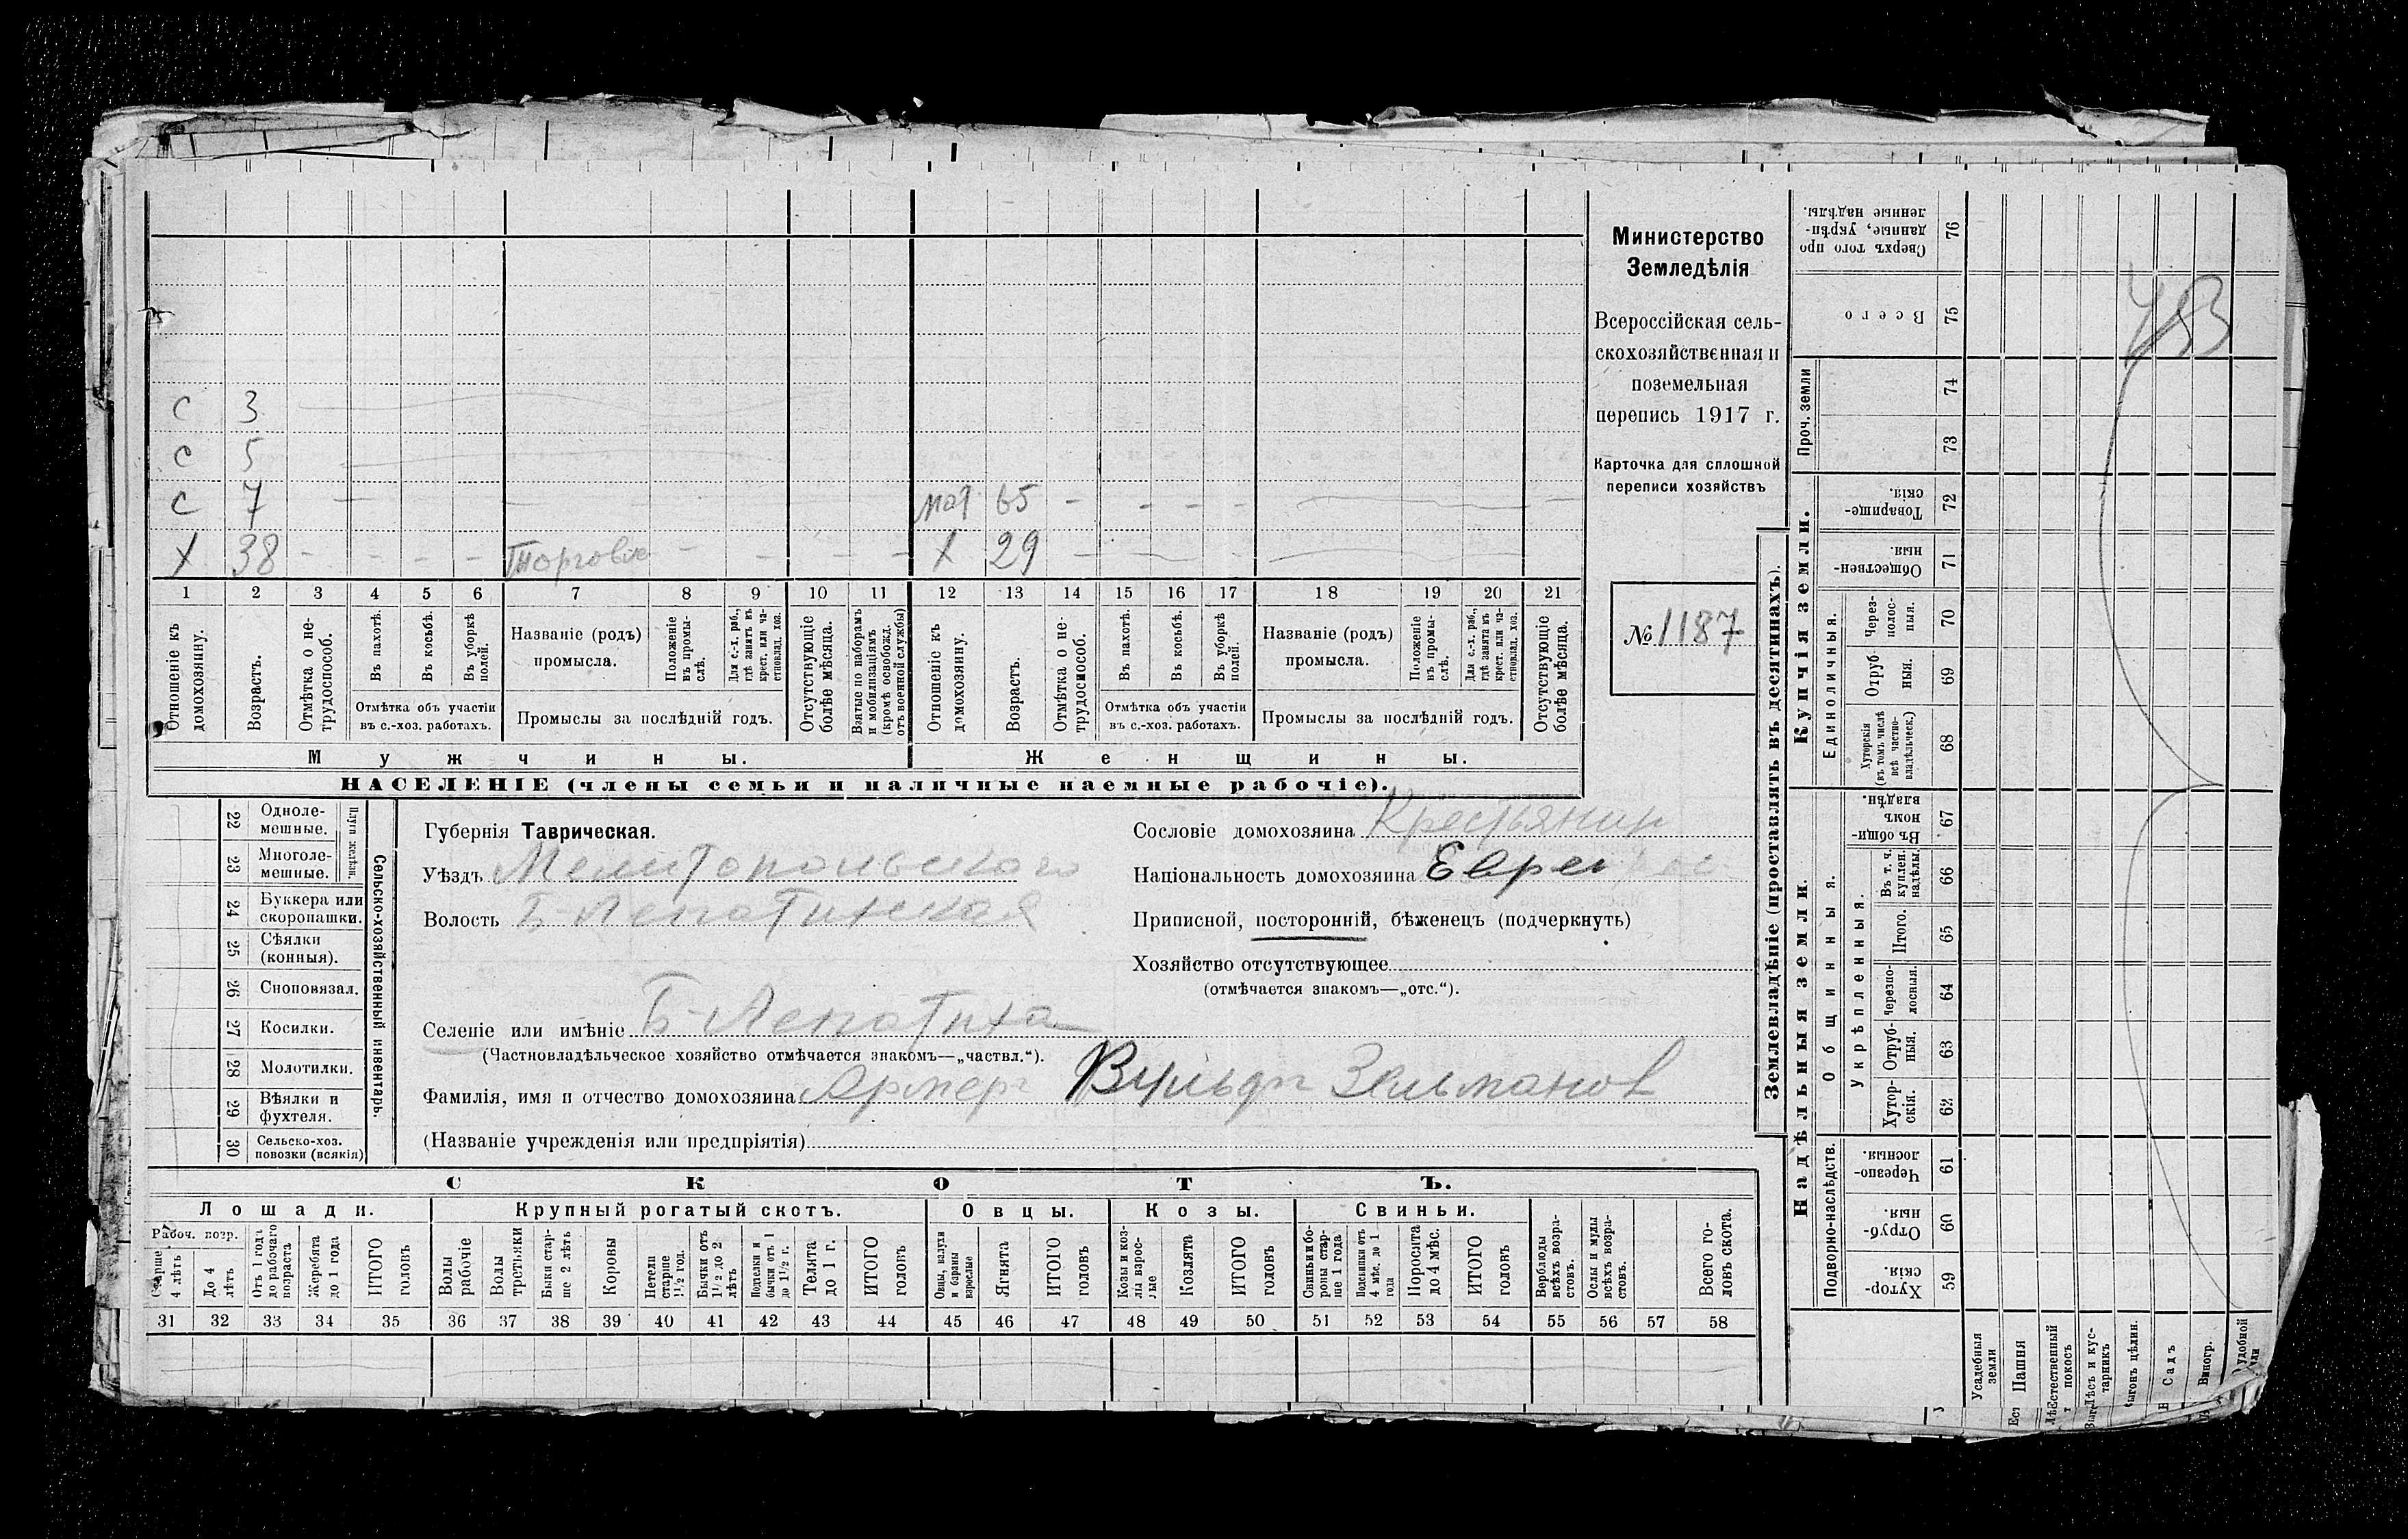 Министерство
Земледѣлія
Всероссійская сель-
скохозяйственная и
поземельная
перепись 1917 г.
Карточка для сплошной
переписи хозяйствъ
№ 1187
с 3
с 5
с 7 мат 65
х 38 Торговля х 29
1 2 3 4 5 6 7 8 9 10 11 12 13 14 15 16 17 18 19 20 21
Отношеніе къ домохозяину.
Возрастъ.
Отмѣтка о не-трудоспособ.
Въ пахотѣ.
Въ косьбѣ.
Въ уборкѣ полей.
Отмѣтка объ участіи
въ с.-хоз. работахъ.
Названіе (родъ)
промысла.
Положеніе въ промы-слѣ.
Для с.-х. раб., гдѣ занятъ въ крест. или ча-стновлад. хоз.
Промыслы за послѣдній годъ.
Отсутствующіе болѣе мѣсяца.
Взятые по наборамъ и мобилизаціямъ (кромѣ освобожд. отъ военной службы)
Отношеніе къ домохозяину.
Возрастъ.
Отмѣтка о не-трудоспособ.
Въ пахотѣ.
Въ косьбѣ.
Въ уборкѣ полей.
Отмѣтка объ участіи
въ с.-хоз. работахъ.
Названіе (родъ)
промысла.
Положеніе въ промы-слѣ.
Для с.-х. раб., гдѣ занята въ крест. или ча-стновлад. хоз.
Промыслы за послѣдній годъ.
Отсутствующіе болѣе мѣсяца.
Мужчины. Женщины.
НАСЕЛЕНІЕ (члены семьи и наличные наемные рабочіе).
Сельско-хозяйственный инвентарь.
Плуги желѣзн.
22 Одноле-мешные.
23 Многоле-мешные.
24 Буккера или скоропашки.
25 Сѣялки (конныя).
26 Сноповязал.
27 Косилки.
28 Молотилки.
29 Вѣялки и фухтеля.
30 Сельско-хоз. повозки (всякія)
Губернія Таврическая.
Уѣздъ Мелитопольского
Волость Б-Лепатихская
Селеніе или имѣніе Б-Лепатиха
(Частновладѣльческое хозяйство отмѣчается знакомъ—„частвл.“).
Фамилія, имя и отчество домохозяина Вульфъ Зельманов
(Названіе учрежденія или предпріятія)
Сословіе домохозяина Крестьянин
Національность домохозяина Еврей
Приписной, посторонній, бѣженецъ (подчеркнуть)
Хозяйство отсутствующее
(отмѣчается знакомъ—„отс.“).
СКОТЪ.
Лошади. Крупный рогатый скотъ. Овцы. Козы. Свиньи.
Рабоч. возр.
Старше 4 лѣтъ
До 4 лѣтъ
Отъ 1 года до рабочаго возраста
Жеребята до 1 года
ИТОГО головъ
Волы рабочіе
Волы третьяки
Быки стар-ше 2 лѣтъ
Коровы
Нетели старше 1½ год.
Бычки отъ 1½ до 2 лѣтъ
Подтелки и бычки отъ 1 до 1½ г.
Телята до 1 г.
ИТОГО головъ
Овцы, валухи и бараны взрослые
Ягнята
ИТОГО головъ
Козы и коз-лы взрос-лые
Козлята
ИТОГО головъ
Свиньи и бо-ровы стар-ше 1 года
Подсвинки отъ 4 мѣс. до 1 года
Поросята до 4 мѣс.
ИТОГО головъ
Верблюды всѣхъ возра-стовъ.
Ослы и мулы всѣхъ возра-стовъ.
Всего го-ловъ скота.
31 32 33 34 35 36 37 38 39 40 41 42 43 44 45 46 47 48 49 50 51 52 53 54 55 56 57 58
Землевладѣніе (проставлять въ десятинахъ).
Купчія земли.
Надѣльныя земли.
Единоличныя.
Общинныя.
Укрѣпленныя.
Подворно-наслѣдств.
Проч. земли
76 Сверхъ того про данные, укрѣп-ленные надѣлы.
75 Всего
74
73
72 Товарище-скія.
71 Обществен-ныя.
70 Через-полос-ныя.
69 Отруб ныя.
68 Хуторскія (въ томъ числѣ всѣ частно-владѣльческ.)
67 Въ общи-номъ владѣн.
66 Въ т. ч. куплен. надѣлы.
65 Итого.
64 Черезпо-лосныя.
63 Отруб-ныя.
62 Хутор-скія.
61 Черезпо-лосныя.
60 Отруб-ныя.
59 Хутор-скія.
Усадебныя земли
Пашня
Естественный покосъ
Лѣсъ и кус-тарникъ
Садъ
Виногр.